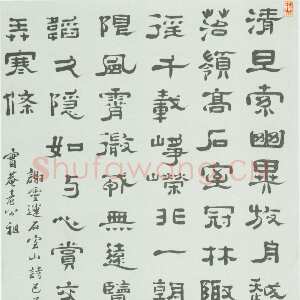 清旦索幽異放舟越
苔嶺高石室冠林陬
徑千載崢嶸非一朝
限風霄微戎無遠
韜久隱如与心賞
弄寒條
謝靈運石室山詩
Shufawang.cn